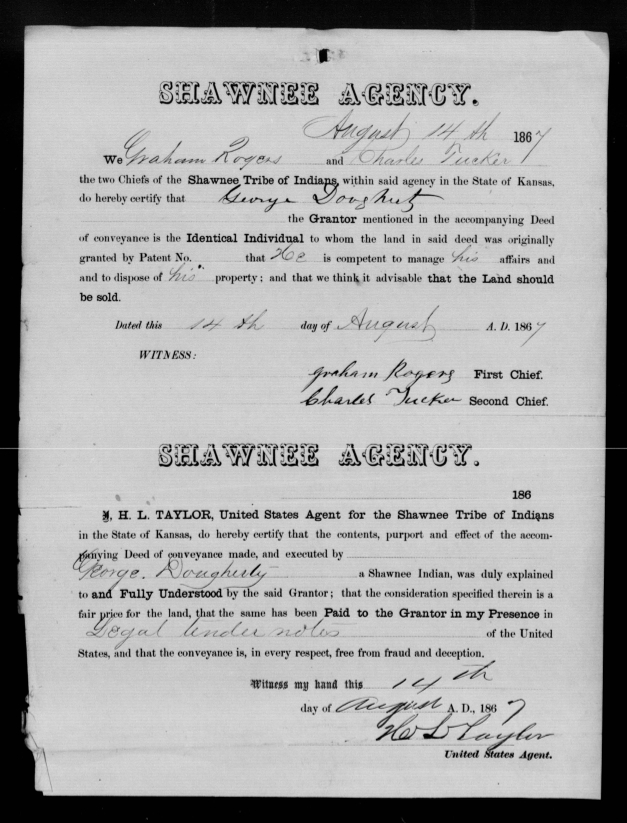 SHAWNEE AGENCY.
August 14th 1867
We Graham Rogers and Charles Tucker
the two Chiefs of the Shawnee Tribe of Indians, within said agency in the State of Kansas,
do hereby certify that George Dougherty
the Grantor mentioned in the accompanying Deed
of conveyance is the Identical Individual to whom the land in said deed was originally
granted by Patent No. that He is competent to manage his affairs and
and to dispose of his property; and that we think it advisable that the Land should
be sold.
Dated this 14th day of August A. D. 1867
WITNESS:
graham Rogers First Chief.
Charles Tucker Second Chief.
SHAWNEE AGENCY.
186
I, H. L. TAYLOR, United States Agent for the Shawnee Tribe of Indians
in the State of Kansas, do hereby certify that the contents, purport and effect of the accom-
panying Deed of conveyance made, and executed by
George. Dougherty a Shawnee Indian, was duly explained
to and Fully Understood by the said Grantor; that the consideration specified therein is a
fair price for the land, that the same has been Paid to the Grantor in my Presence in
Legal tender notes of the United
States, and that the conveyance is, in every respect, free from fraud and deception.
Witness my hand this 14th
day of August A. D., 1867
H L Taylor
United States Agent.